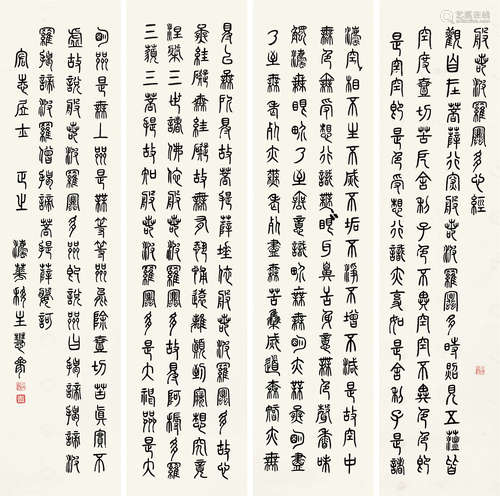 般若波羅蜜多心經
觀自在菩薩行深般若波羅蜜多時照見五蘊皆
空度壹切苦厄舍利子色不異空空不異色色即
是空空即是色受想行識亦復如是舍利子是諸
法空相不生不滅不垢不淨不增不減是故空中
無色無受想行識無眼耳鼻舌身意無色聲香味
觸法無眼界乃至無意識界無無明亦無無明盡
乃至無老死亦無老死盡無苦集滅道無智亦無
得以無所得故菩提薩埵依般若波羅蜜多故心
無罣礙無罣礙故無有恐怖遠離顛倒夢想究竟
涅槃三世諸佛依般若波羅蜜多故得阿耨多羅
三藐三菩提故知般若波羅蜜多是大神咒是大
明咒是無上咒是無等等咒能除壹切苦真實不
虛故說般若波羅蜜多咒即說咒曰揭諦揭諦波
羅揭諦波羅僧揭諦菩提薩婆訶
宏志居士 正之